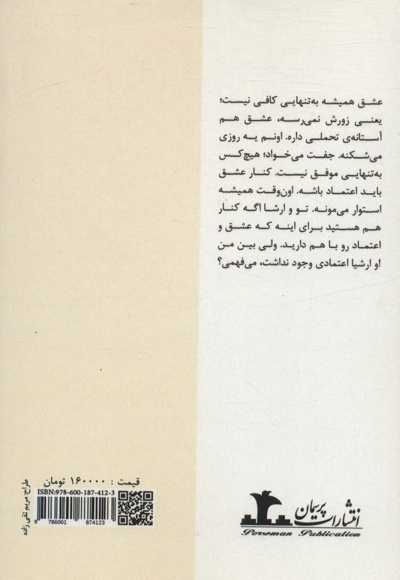 عشق همیشه به‌تنهایی کافی نیست؛
یعنی زورش نمی‌رسه، عشق هم
آستانه‌ی تحملی داره. اونم یه روزی
می‌شکنه. جفت می‌خواد؛ هیچ‌کس
به‌تنهایی موفق نیست. کنار عشق
باید اعتماد باشه. اون‌وقت همیشه
استوار می‌مونه. تو و ارشا اگه کنار
هم هستید برای اینه که عشق و
اعتماد رو با هم دارید. ولی بین من
و ارشیا اعتمادی وجود نداشت، می‌فهمی؟!
قیمت : ۱۶۰۰۰۰ تومان
ISBN:978-600-187-412-3
9 786001 874123
طراح: مریم تقی زاده
انتشارات پریمان
Poreman Publication